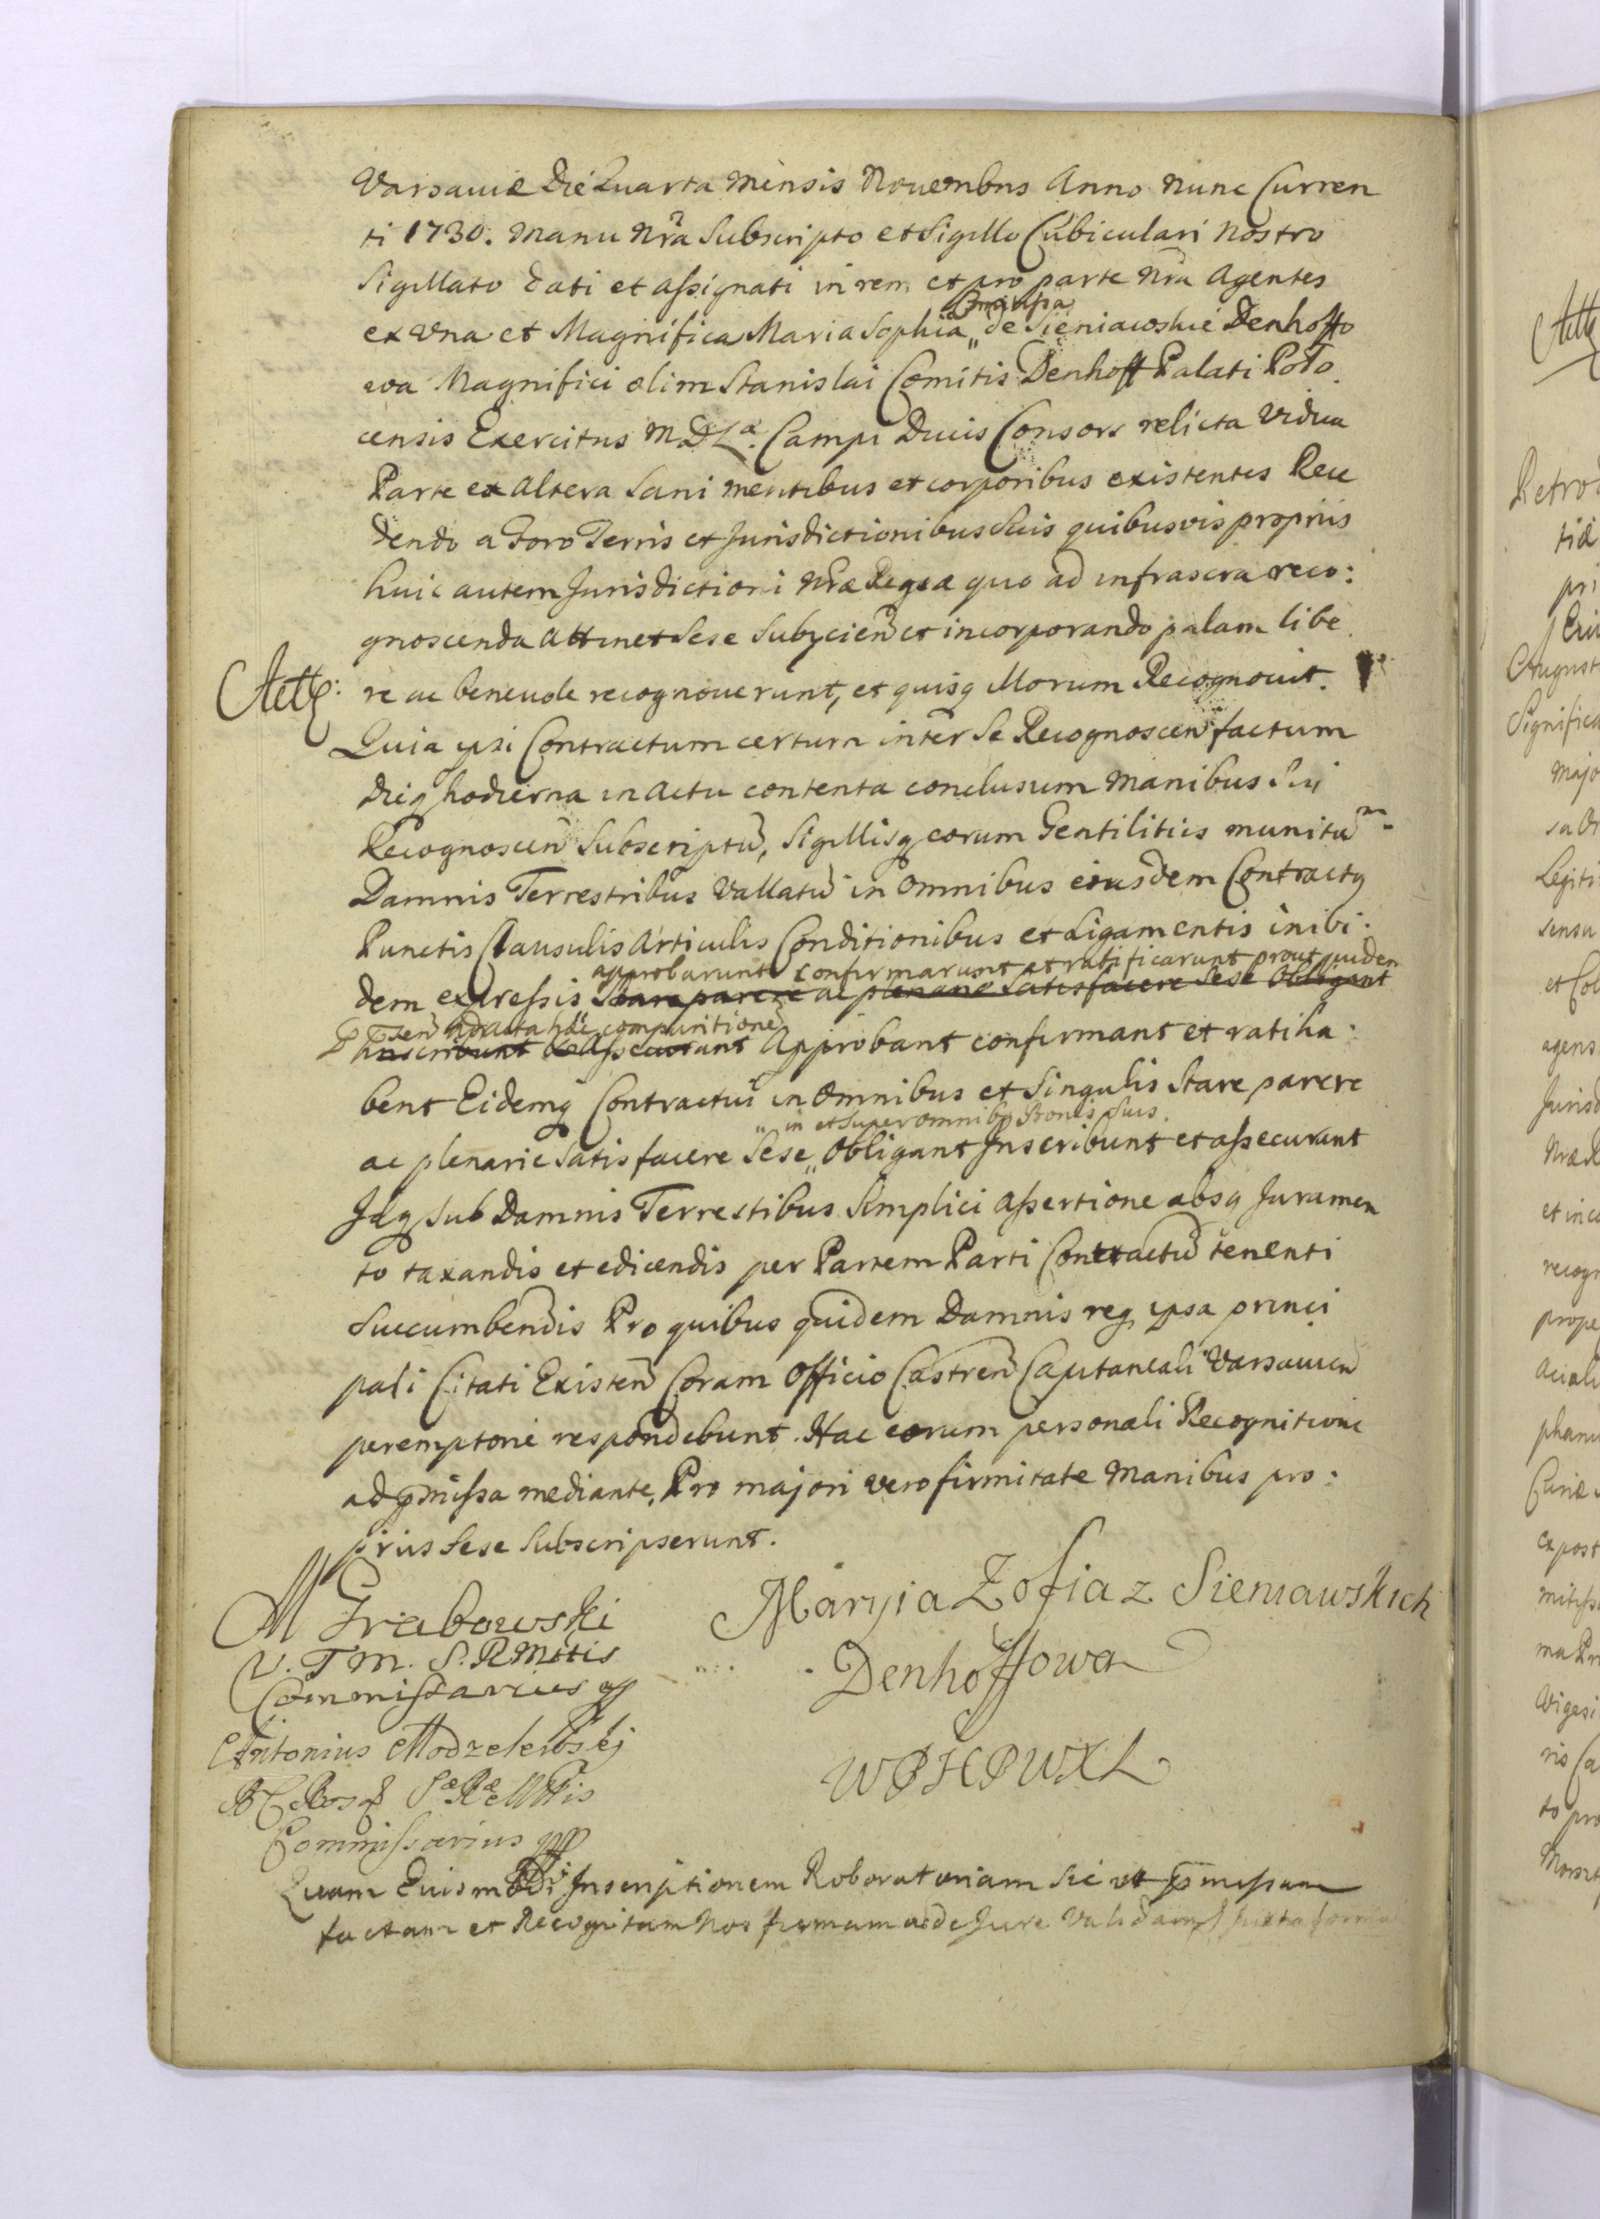 Varsaviæ Die Quarta Mensis Novembris Anno Nunc Curren
ti 1730. Manu Nrã Subscripto et Sigillo Cubiculari Nostro
Sigillato Dati et assignati in rem et pro parte Nrã Agentes
ex Una et Magnifica Maria Sophia „ de Sieniawskie Denhoffo
wa Magnifici olim Stanislai Comitis Denhoff Palati Polo
censis Exercitus M D L æ. Campi Ducis Consors relicta Vidua
Parte ex Altera Sani mentibus et corporibus existentes Rece
dendo a Foro Terris et Jurisdictionibus Suis quibusvis propriis
huic autem Jurisdictioni Nræ Regiæ quo ad infrascra reco:
gnoscenda attinet Sese Subyciend et incorporando palam libe
re ac benevole recognoverunt, et quisq Illorum Recognovit.
Actt:
Quia ipsi Contractum certum inter Se Recognoscen factum
Dieq hodierna in Actu contenta conclusum Manibus Sui
Recognoscen Subscriptũ, Sigillisq eorum Gentilitiis munitũ m
Damnis Terrestribus Vallatũ in Omnibus eiusdem Contractq
Punctis Clausulis Articulis Conditionibus et Ligamentis inibi:
approbarunt confirmarunt et ratificarunt prout quidem
dem expressis Stare parere ac plenarie Satisfacere Sese Obligant
ad acta hac comparitione
Inscribunt et Assecurant Approbant confirmant et ratiha:
bent Eidemq Contractui in Omnibus et Singulis Stare parere
„ in et Super omnibq Bonis Suis
ac plenarie Satisfacere Sese „ Obligant Inscribunt et assecurant
Idq Sub Damnis Terrestibus Simplici assertione absq Juramen
to taxandis et edicendis per Partem Parti Contractũ tenenti
Succumbendis Pro quibus quidem Damnis req ipsa princi
pali Citati Existen Coram Officio Castren Capitaneali Varsavien
peremptorie respondebunt. Hac eorum personali Recognitione
ad pmissa mediante, Pro majori vero firmitate Manibus pro:
priis Sese Subscripserunt.
M Grabowski
V. T M. S. R Mttis
Commissarius
Maryia Zofia z Sieniawskich
Denhoffowa
W P H P W X L
Antonius Modzelewskj
Sæ Ræ Mttis
Commissarius
Quam Euismodi Inscriptionem Roboratoriam Sic ut pmissam
factam et Recognitam Nos firmam ac de Jure Validam juxta